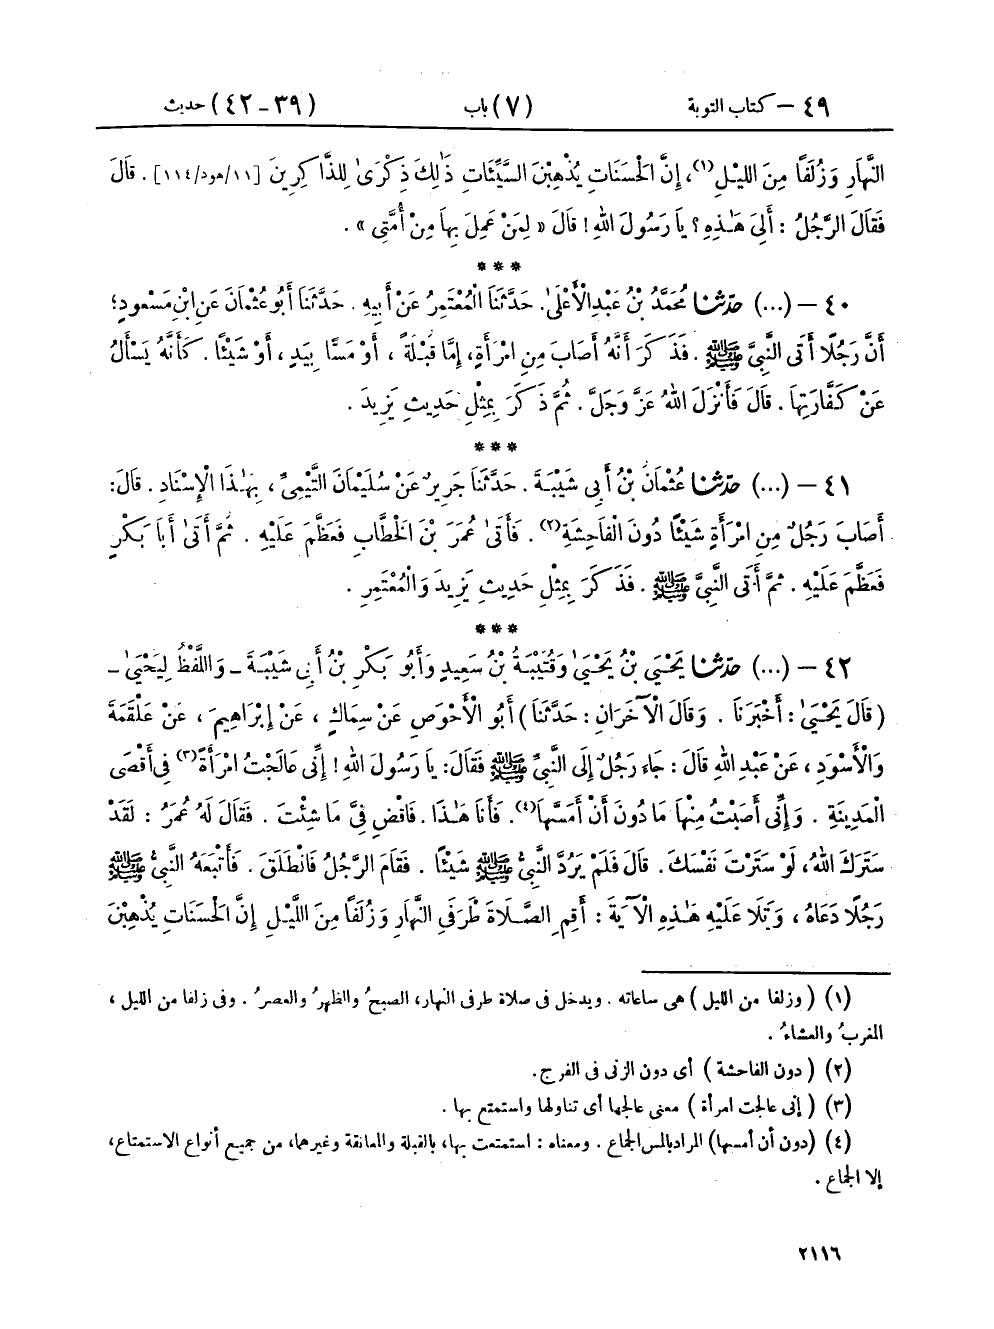 ٤٩ – كتاب التوبة (٧) باب (٣٩ - ٤٢) حديث
النَّهَارِ وَزُلَفًا مِنَ اللَّيْلِ(١)، إِنَّ الْحَسَنَاتِ يُذْهِبْنَ السَّيِّئَاتِ ذَٰلِكَ ذِكْرَىٰ لِلذَّاكِرِينَ [١١/هود/١١٤] . قَالَ
فَقَالَ الرَّجُلُ : أَلِيَ هَٰذِهِ ؟ يَا رَسُولَ اللهِ ! قَالَ « لِمَنْ عَمِلَ بِهَا مِنْ أُمَّتِي » .
***
٤٠ – (...) حَدَّثَنَا مُحَمَّدُ بْنُ عَبْدِ الْأَعْلَىٰ. حَدَّثَنَا الْمُعْتَمِرُ عَنْ أَبِيهِ . حَدَّثَنَا أَبُو عُثْمَانَ عَنِ ابْنِ مَسْعُودٍ؛
أَنَّ رَجُلًا أَتَى النَّبِيَّ ﷺ . فَذَكَرَ أَنَّهُ أَصَابَ مِنِ امْرَأَةٍ، إِمَّا قُبْلَةً ، أَوْ مَسًّا بِيَدٍ ، أَوْ شَيْئًا . كَأَنَّهُ يَسْأَلُ
عَنْ كَفَّارَتِهَا . قَالَ فَأَنْزَلَ اللهُ عَزَّ وَجَلَّ . ثُمَّ ذَكَرَ بِمِثْلِ حَدِيثِ يَزِيدَ .
***
٤١ – (...) حَدَّثَنَا عُثْمَانُ بْنُ أَبِي شَيْبَةَ . حَدَّثَنَا جَرِيرٌ عَنْ سُلَيْمَانَ التَّيْمِيِّ ، بِهَٰذَا الْإِسْنَادِ . قَالَ:
أَصَابَ رَجُلٌ مِنِ امْرَأَةٍ شَيْئًا دُونَ الْفَاحِشَةِ(٢) . فَأَتَىٰ عُمَرَ بْنَ الْخَطَّابِ فَعَظَّمَ عَلَيْهِ . ثُمَّ أَتَىٰ أَبَا بَكْرٍ
فَعَظَّمَ عَلَيْهِ . ثُمَّ أَتَى النَّبِيَّ ﷺ . فَذَكَرَ بِمِثْلِ حَدِيثِ يَزِيدَ وَالْمُعْتَمِرِ .
***
٤٢ – (...) حَدَّثَنَا يَحْيَىٰ بْنُ يَحْيَىٰ وَقُتَيْبَةُ بْنُ سَعِيدٍ وَأَبُو بَكْرِ بْنُ أَبِي شَيْبَةَ – وَاللَّفْظُ لِيَحْيَىٰ –
( قَالَ يَحْيَىٰ : أَخْبَرَنَا . وَقَالَ الْآخَرَانِ : حَدَّثَنَا ) أَبُو الْأَحْوَصِ عَنْ سِمَاكٍ ، عَنْ إِبْرَاهِيمَ ، عَنْ عَلْقَمَةَ
وَالْأَسْوَدِ ، عَنْ عَبْدِ اللهِ قَالَ : جَاءَ رَجُلٌ إِلَى النَّبِيِّ ﷺ فَقَالَ: يَا رَسُولَ اللهِ ! إِنِّي عَالَجْتُ امْرَأَةً(٣) فِي أَقْصَى
الْمَدِينَةِ . وَإِنِّي أَصَبْتُ مِنْهَا مَا دُونَ أَنْ أَمَسَّهَا(٤). فَأَنَا هَٰذَا . فَاقْضِ فِيَّ مَا شِئْتَ . فَقَالَ لَهُ عُمَرُ : لَقَدْ
سَتَرَكَ اللهُ، لَوْ سَتَرْتَ نَفْسَكَ. قَالَ فَلَمْ يَرُدَّ النَّبِيُّ ﷺ شَيْئًا . فَقَامَ الرَّجُلُ فَانْطَلَقَ . فَأَتْبَعَهُ النَّبِيُّ ﷺ
رَجُلًا دَعَاهُ ، وَتَلَا عَلَيْهِ هَٰذِهِ الْآيَةَ : أَقِمِ الصَّلَاةَ طَرَفَيِ النَّهَارِ وَزُلَفًا مِنَ اللَّيْلِ إِنَّ الْحَسَنَاتِ يُذْهِبْنَ
(١) ( وزلفا من الليل ) هى ساعاته . ويدخل فى صلاة طرفى النهار، الصبحُ والظهرُ والعصرُ . وفى زلفا من الليل ،
المغربُ والعشاءُ .
(٢) ( دون الفاحشة ) أى دون الزنى فى الفرج.
(٣) ( إنى عالجت امرأة ) معنى عالجها أى تناولها واستمتع بها .
(٤) (دون أن أمسها) المراد بالمس الجماع . ومعناه : استمتعت بها، بالقبلة والمعانقة وغيرهما، من جميع أنواع الاستمتاع،
إلا الجماع .
٢١١٦